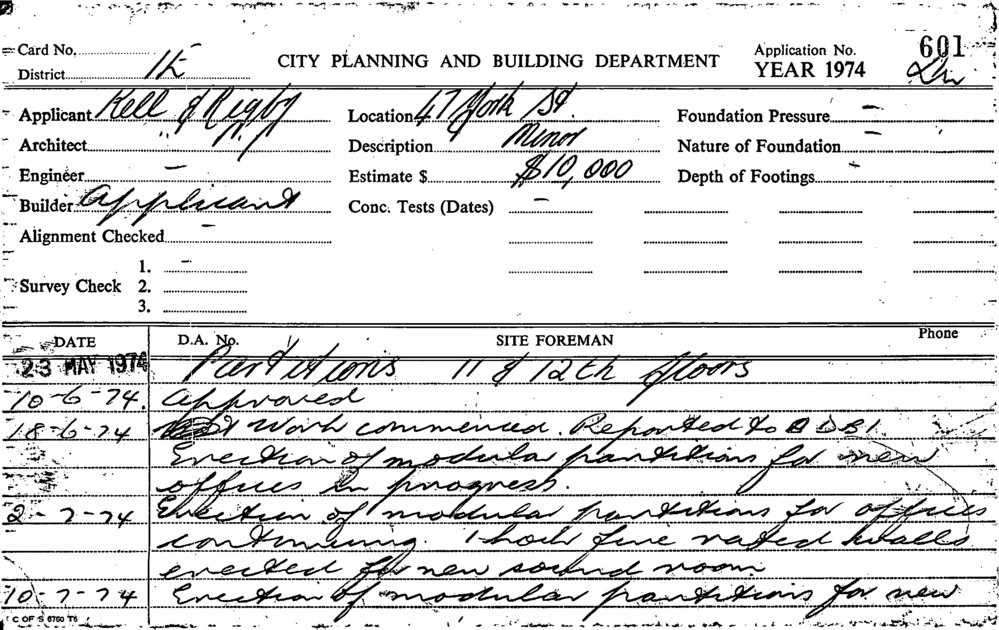 Card No.
District 1E
CITY PLANNING AND BUILDING DEPARTMENT
Application No. 601
YEAR 1974
Applicant Kell & Rigby
Location 47 York St.
Foundation Pressure –
Architect " "
Description Minor
Nature of Foundation –
Engineer –
Estimate $ $10,000
Depth of Footings –
Builder Applicant
Conc. Tests (Dates) –
Alignment Checked
Survey Check
1. –
2.
3.
DATE
D.A. No.
SITE FOREMAN
Phone
23 MAY 1974 Partitions 11 & 12th floors
10-6-74. Approved
18-6-74 Work commenced. Reported to
Erection of modular partitions for new
offices in progress.
2-7-74 Erection of modular partitions for offices
continuing. 1 hour fire rated walls
erected for new sound room
10-7-74 Erection of modular partitions for new
C OF S 6750 T6